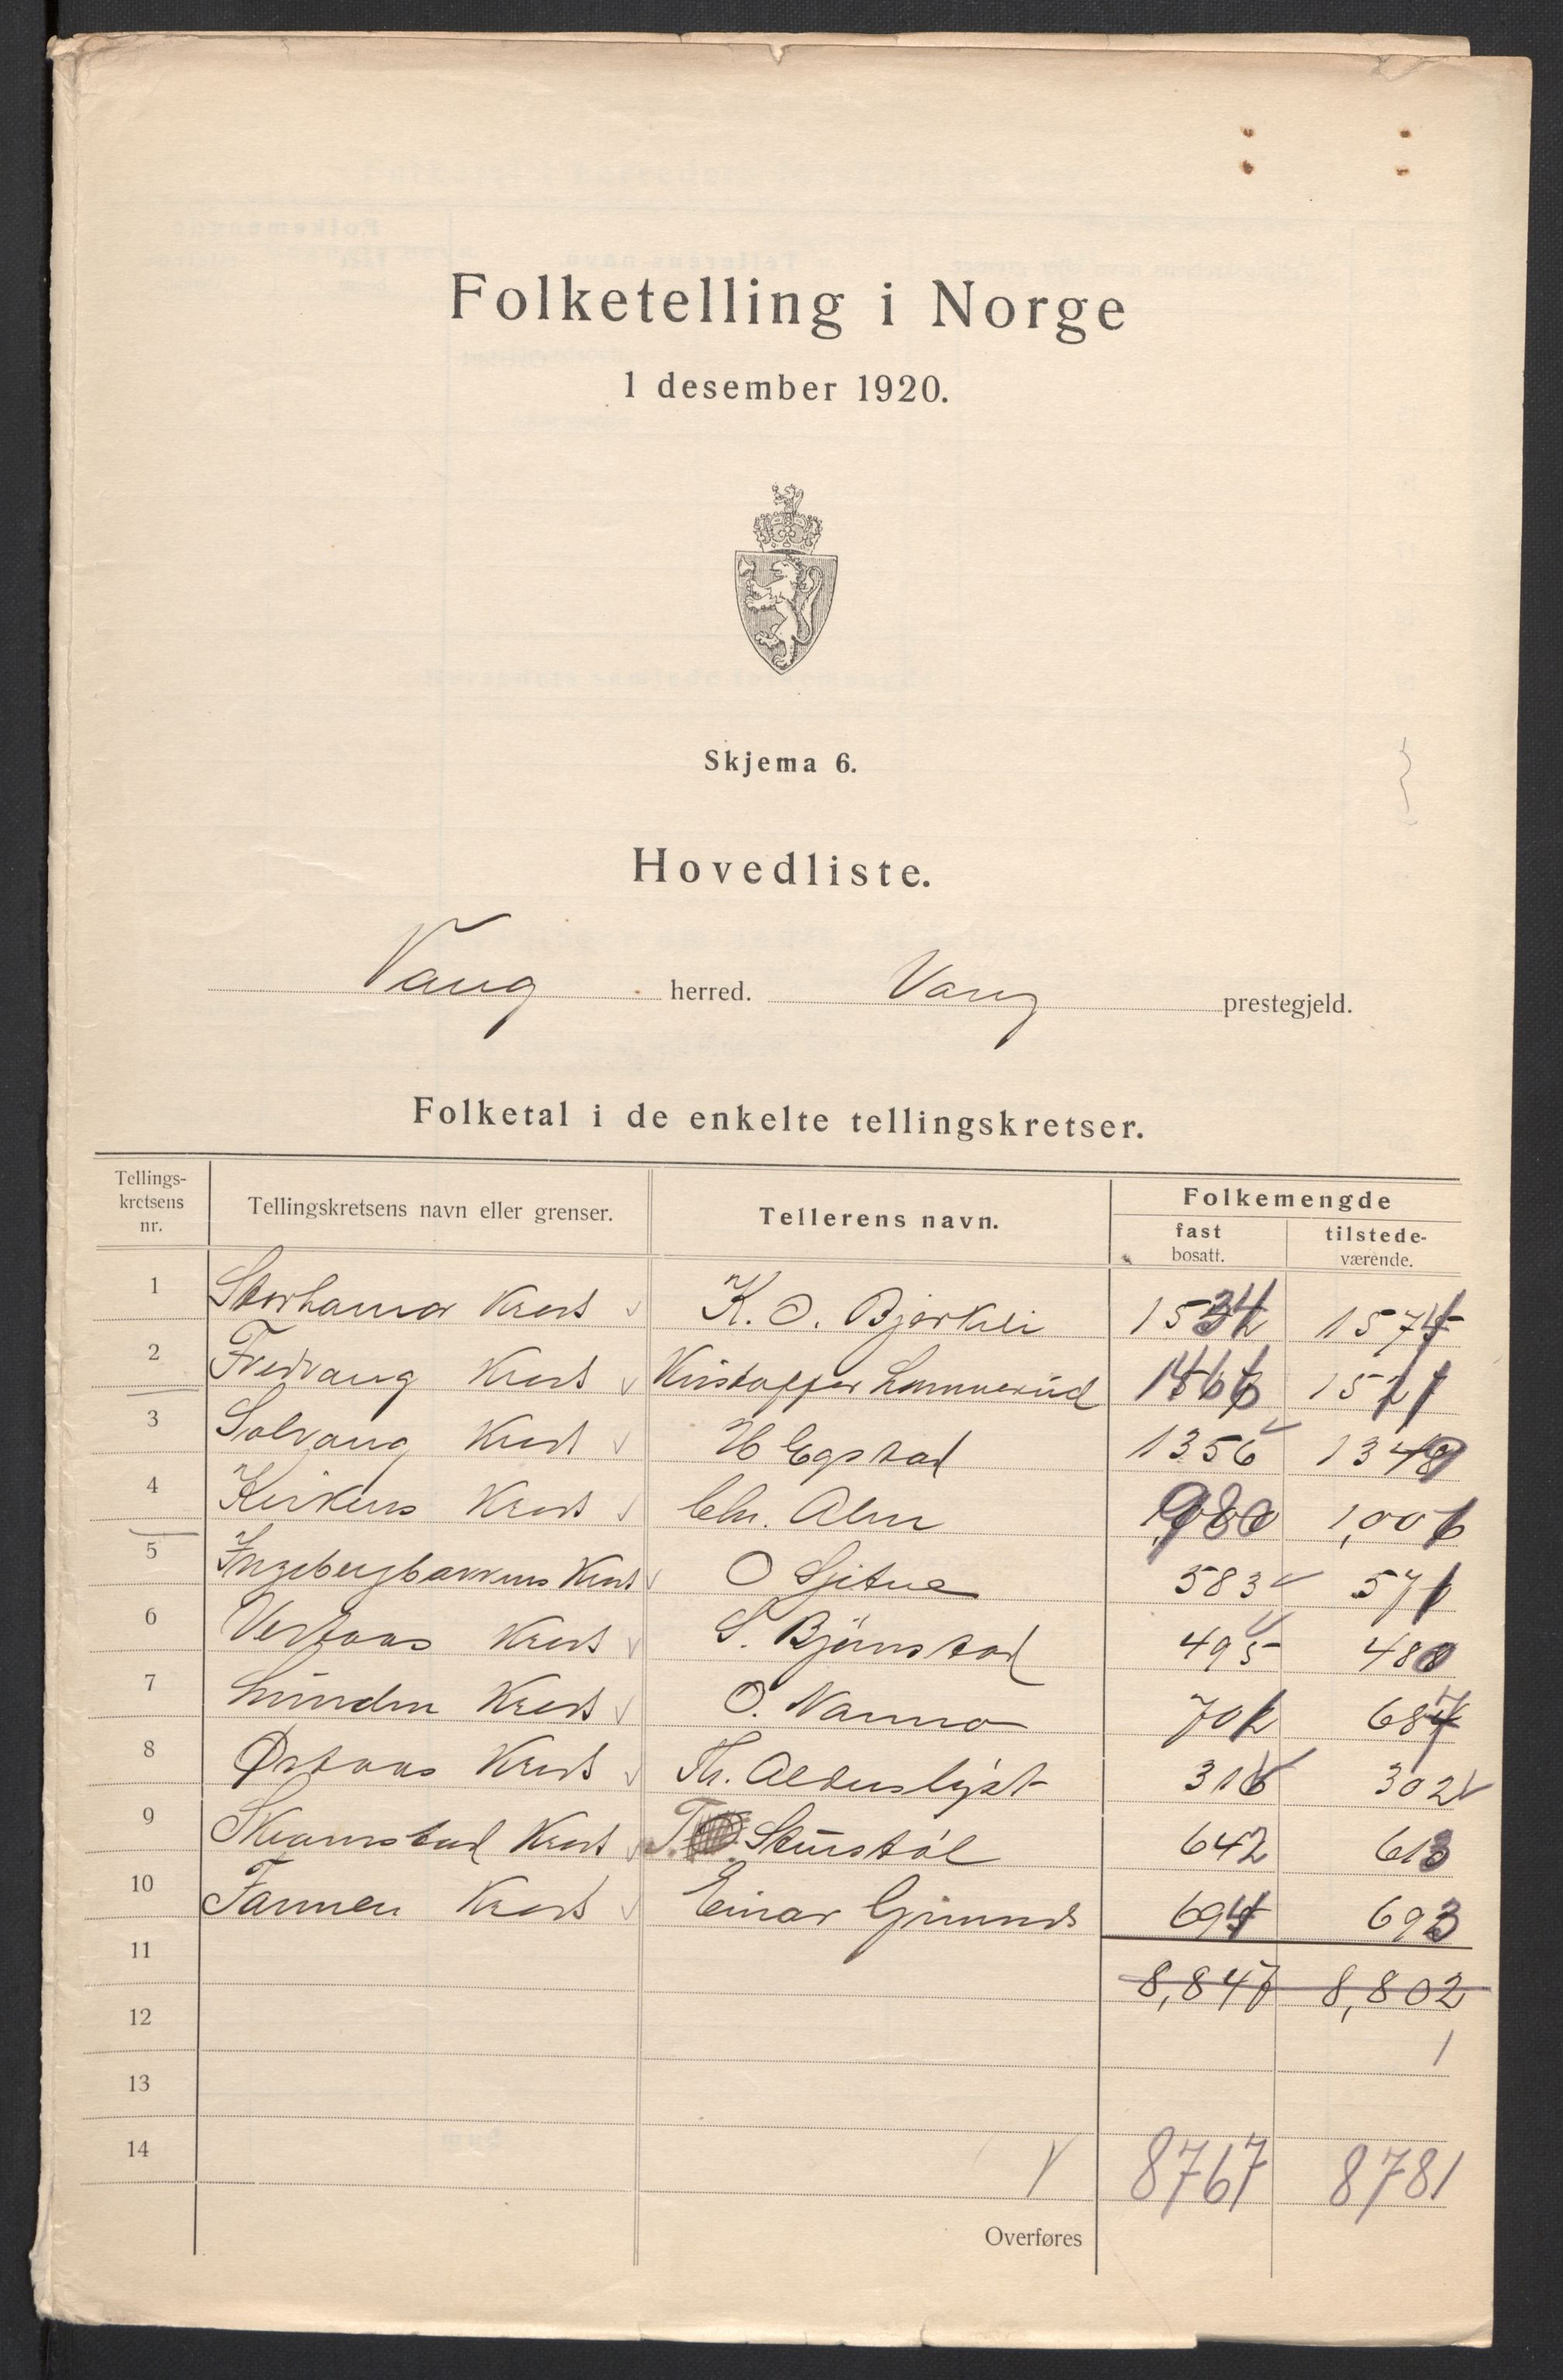 Folketelling i Norge
1 desember 1920.
Skjema 6.
Hovedliste.
Vang herred. Vang prestegjeld.
Folketal i de enkelte tellingskretser.
Tellings-
kretsens
nr.
Tellingskretsens navn eller grenser.
Tellerens navn.
Folkemengde
fast
bosatt.
tilstede-
værende.
1 Storhamar Kreds K. O. Bjørkli 1534 1574
2 Fredvang Kreds Kristoffer 1466 1521
3 Solvang Kreds H Egstad 1356 1349
4 Kirkens Kreds Chr. Alm 980 1,001
5 Ingebergbakkens Kreds O 583 571
6 Vestaas Kreds S. Bjørnstad 495 480
7 Lunden Kreds O. 701 687
8 Østaas Kreds Th. 316 302
9 Kreds T. 642 613
10 Farmen Kreds Einar 694 693
11 8,847 8,802
12 1
13
14 8767 8781
Overføres